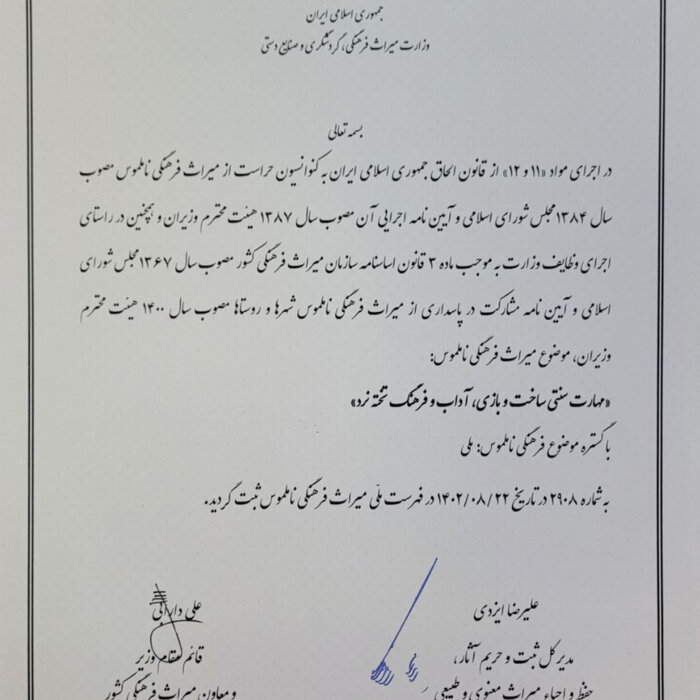 جمهوری اسلامی ایران
وزارت میراث فرهنگی، گردشگری و صنایع دستی
بسمه تعالی
در اجرای مواد «۱۱ و ۱۲» از قانون الحاق جمهوری اسلامی ایران به کنوانسیون حراست از میراث فرهنگی ناملموس مصوب
سال ۱۳۸۴ مجلس شورای اسلامی و آیین نامه اجرایی آن مصوب سال ۱۳۸۷ هیئت محترم وزیران و همچنین در راستای
اجرای وظایف وزارت به موجب ماده ۳ قانون اساسنامه سازمان میراث فرهنگی کشور مصوب سال ۱۳۶۷ مجلس شورای
اسلامی و آیین نامه مشارکت در پاسداری از میراث فرهنگی ناملموس شهرها و روستاها مصوب سال ۱۴۰۰ هیئت محترم
وزیران، موضوع میراث فرهنگی ناملموس:
«مهارت سنتی ساخت و بازی، آداب و فرهنگ تخته نرد»
با گستره موضوع فرهنگی ناملموس: ملی
به شماره ۲۹۰۸ در تاریخ ۱۴۰۲/۰۸/۲۲ در فهرست ملّی میراث فرهنگی ناملموس ثبت گردید.
علیرضا ایزدی
مدیر کل ثبت و حریم آثار،
حفظ و احیاء میراث معنوی و طبیعی
علی دارابی
قائم مقام وزیر
و معاون میراث فرهنگی کشور